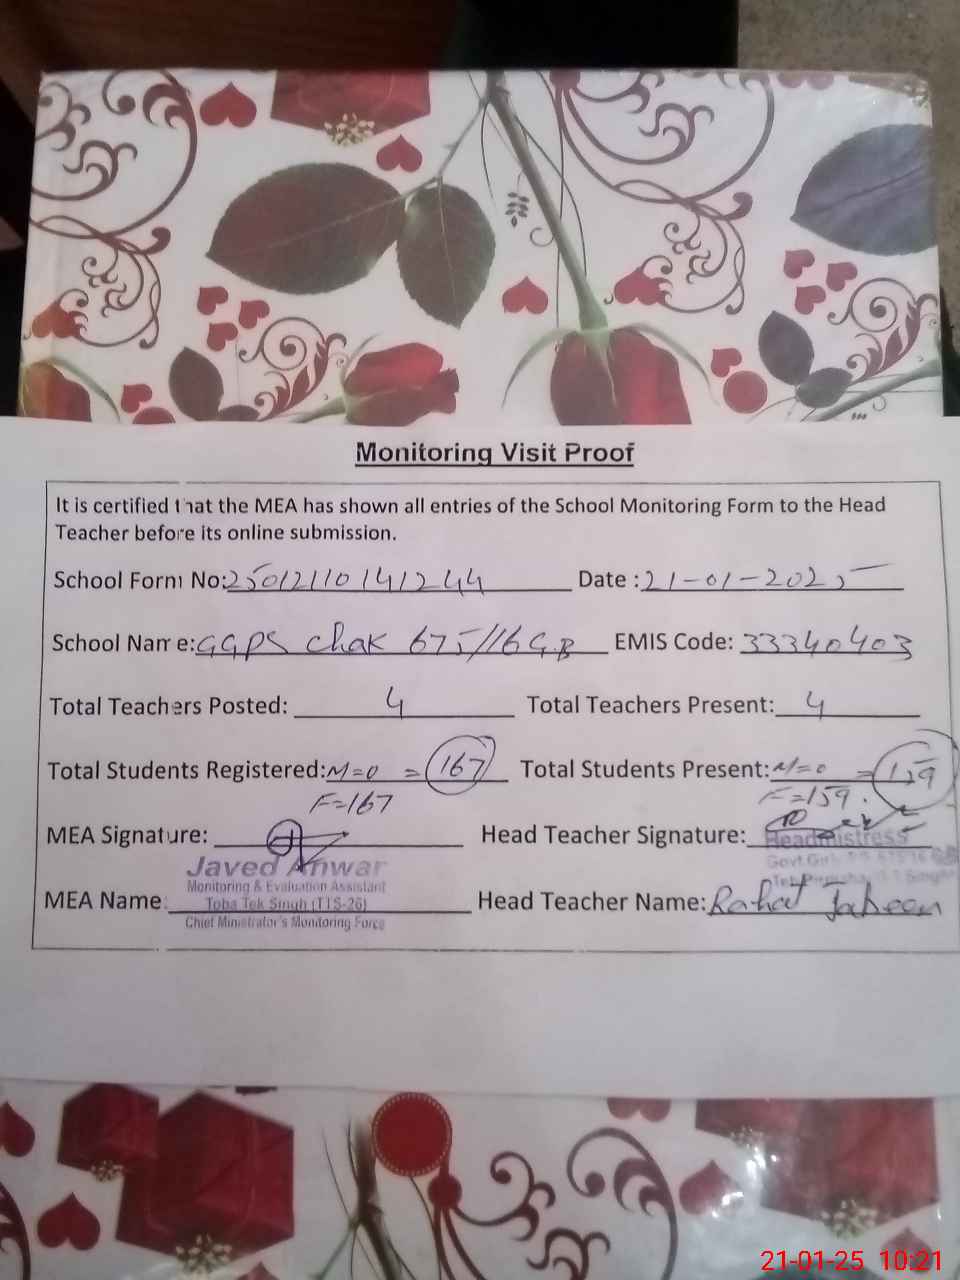 Monitoring Visit Proof
It is certified that the MEA has shown all entries of the School Monitoring Form to the Head
Teacher before its online submission.
School Form No: 25012110141244 Date : 21-01-2025
School Name: GGPS Chak 675/16 G.B EMIS Code: 33340403
Total Teachers Posted: 4 Total Teachers Present: 4
Total Students Registered: M=0 = 167 Total Students Present: M=0 = 159
F=167 F=159
MEA Signature: Head Teacher Signature:
Headmistress
Javed Anwar
Govt. Girls
Monitoring & Evaluation Assistant
MEA Name: Toba Tek Singh (TTS-26) Head Teacher Name: Rahat Jabeen
Chief Ministrator's Monitoring Force
21-01-25 10:21